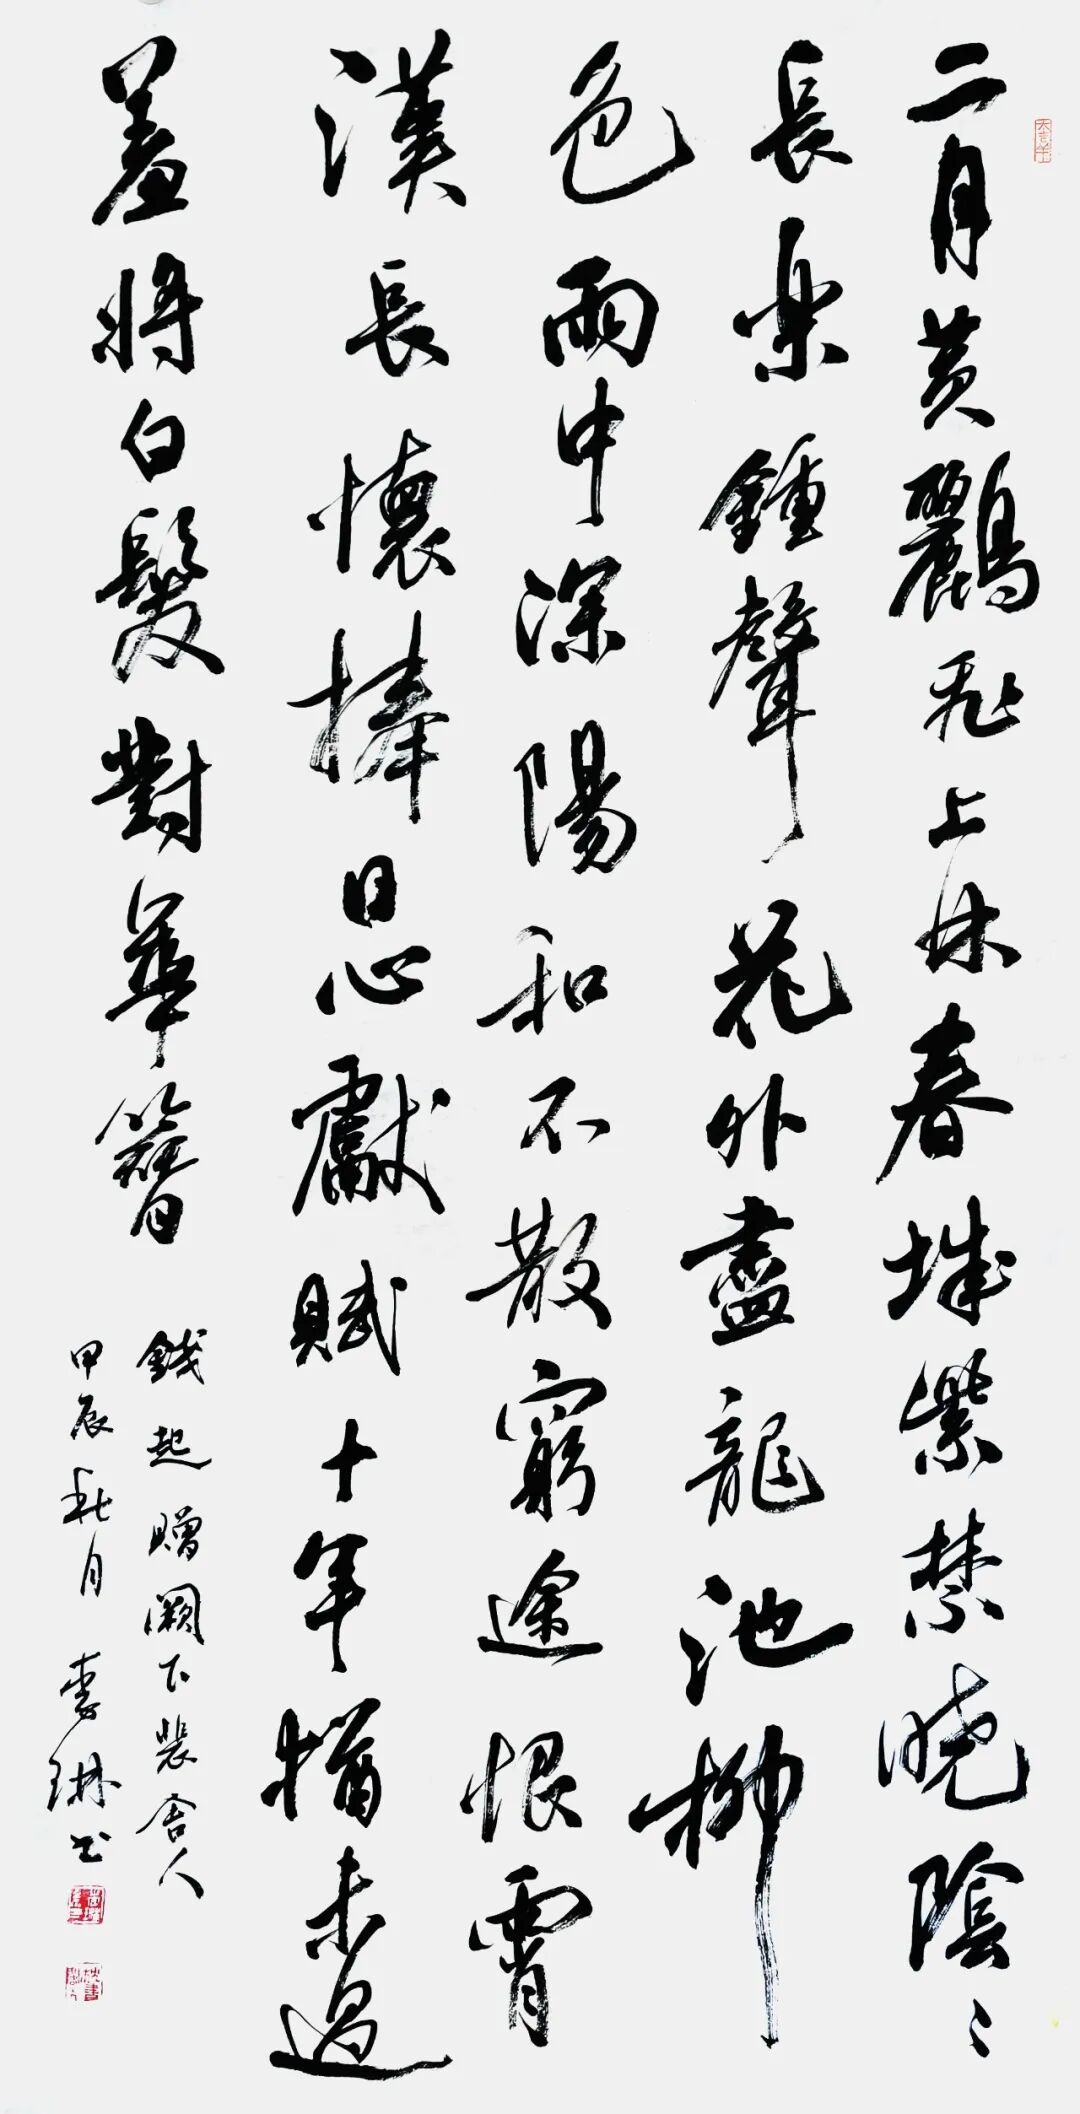 二月黃鸝飛上林春城紫禁曉陰〻
長樂鍾聲花外盡龍池柳
色雨中深陽和不散窮途恨霄
漢長懷捧日心獻賦十年猶未遇
羞將白髮對華簪
錢起贈闕下裴舍人
甲辰秋月李琳书